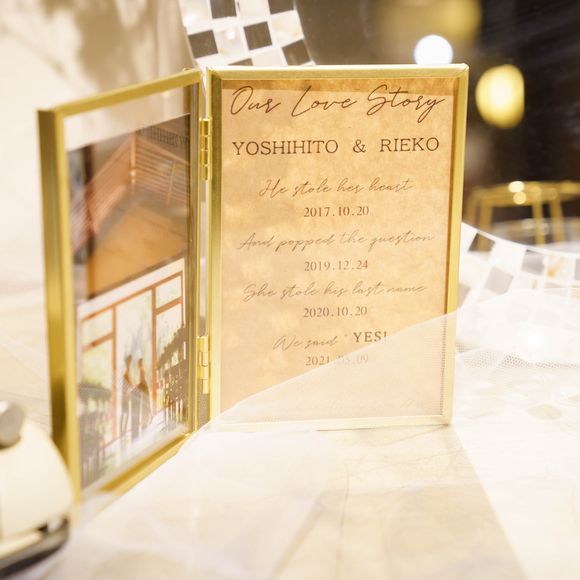 Our Love Story
YOSHIHITO & RIEKO
He stole her heart
2017.10.20
And popped the question
2019.12.24
She stole his last name
2020.10.20
We said "YES!
2021.05.09